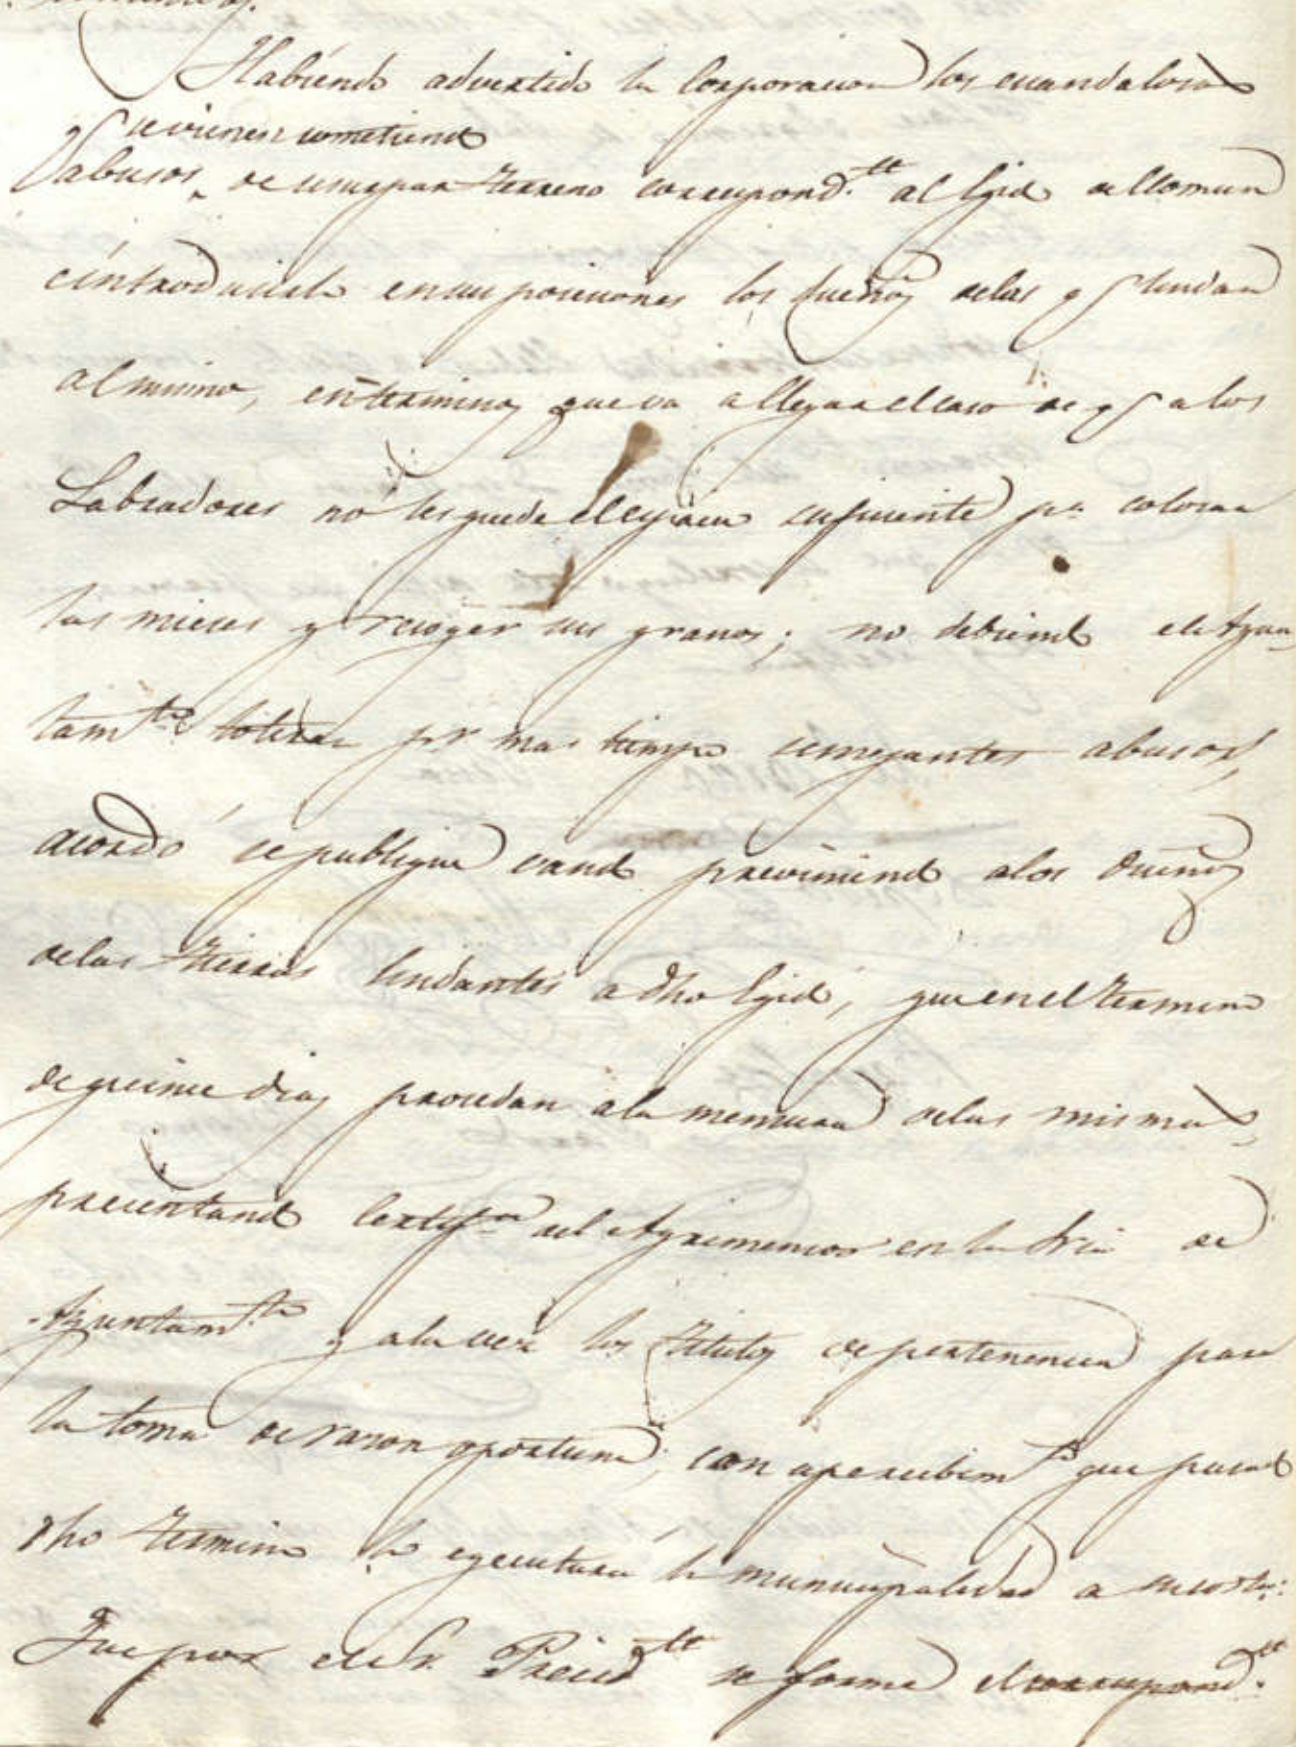 Habiendo advertido la Corporacion los escandalosos
q.e se vienen cometiendo
abusos, de usurpar terreno correspond.te al Egido del Comun
é introduciendo en sus posesiones los dueños de las q.e lindan
al mismo, en terminos que va a llegar el caso de q.e a los
Labradores no les quede el espacio suficiente p.a colocar
las mieses y recoger sus granos; no debiendo el Ayun-
tam.to tolerar p.r mas tiempo semejantes abusos,
acordó se publique vando previniendo a los Dueños
de las tierras lindantes a dho Egido, que en el termino
de quince dias procedan a la mensura de las mismas,
presentando Certif.on del Agrimensor en la Sria de
Ayuntam.to y a la vez los titulos de pertenencia para
la toma de razon oportuna; con apercibim.to que pasado
dho termino lo egecutará la municipalidad a su costa:
Que por el S.r Presid.te se forme el correspond.te